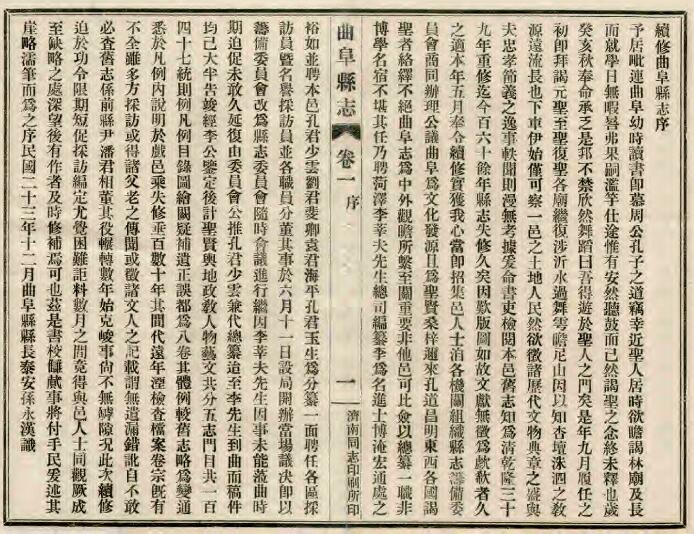 續修曲阜縣志序
予居毗連曲阜幼時讀書即慕周公孔子之道竊幸近聖人居時欲瞻謁林廟及長
而就學日無暇晷弗果嗣濫竽仕途惟有安然聽鼓而已然謁聖之念終未釋也歲
癸亥秋奉命承乏是邦不禁欣然舞蹈曰吾得遊於聖人之門矣是年九月履任之
初即拜謁元聖至聖復聖各廟繼復涉沂水過舞雩瞻尼山因以知杏壇洙泗之敎
源遠流長也下車伊始僅可察一邑之土地人民然欲徵諸歷代文物典章之盛與
夫忠孝節義之逸事軼聞則漫無考據爰命書吏檢閱本邑舊志知爲淸乾隆三十
九年重修迄今百六十餘年縣志失修久矣因歎版圖如故文獻無徵爲歉歉者久
之適本年五月奉令續修實獲我心當卽招集邑人士洎各機關組織縣志籌備委
員會商同辦理公議曲阜爲文化發源且爲聖賢桑梓邇來孔道昌明東西各國謁
聖者絡繹不絕曲阜志爲中外觀瞻所繫至關重要非他邑可比僉以總纂一職非
博學名宿不堪其任乃聘菏澤李莘夫先生總司編纂李爲名進士博淹宏通處之
曲阜縣志 卷一 序 一 濟南同志印刷所印
裕如並聘本邑孔君少雲劉君菱卿袁君海平孔君玉生爲分纂一面聘任各區採
訪員暨名譽採訪員並各職員分董其事於六月十一日設局開辦當場議決卽以
籌備委員會改爲縣志委員會隨時會議進行繼因李莘夫先生因事未能蒞曲時
期迫促未敢久延復由委員會公推孔君少雲兼代總纂迨至李先生到曲而稿件
均已大半吿竣經李公鑒定後計聖賢輿地政敎人物藝文共分五志門目共一百
四十七統則例凡例目錄圖繪闕疑補遺正誤都爲八卷其體例較舊志略爲變通
悉於凡例內說明於戲邑乘失修垂百數十年其間代遠年湮檢查檔案卷宗旣有
不全雖多方採訪或得諸父老之傳聞或徵諸文人之記載謂無遺漏錯訛自不敢
必査舊志係前縣尹潘君相董其役輾轉數年始克竣事尙不無罅隙況此次續修
迫於功令限期短促採訪編定尤覺困難詎料數月之間竟得與邑人士同觀厥成
至缺略之處深望後有作者及時修補焉可也茲是書校讎蕆事將付手民爰述其
崖略濡筆而爲之序民國二十三年十二月曲阜縣縣長泰安孫永漢識